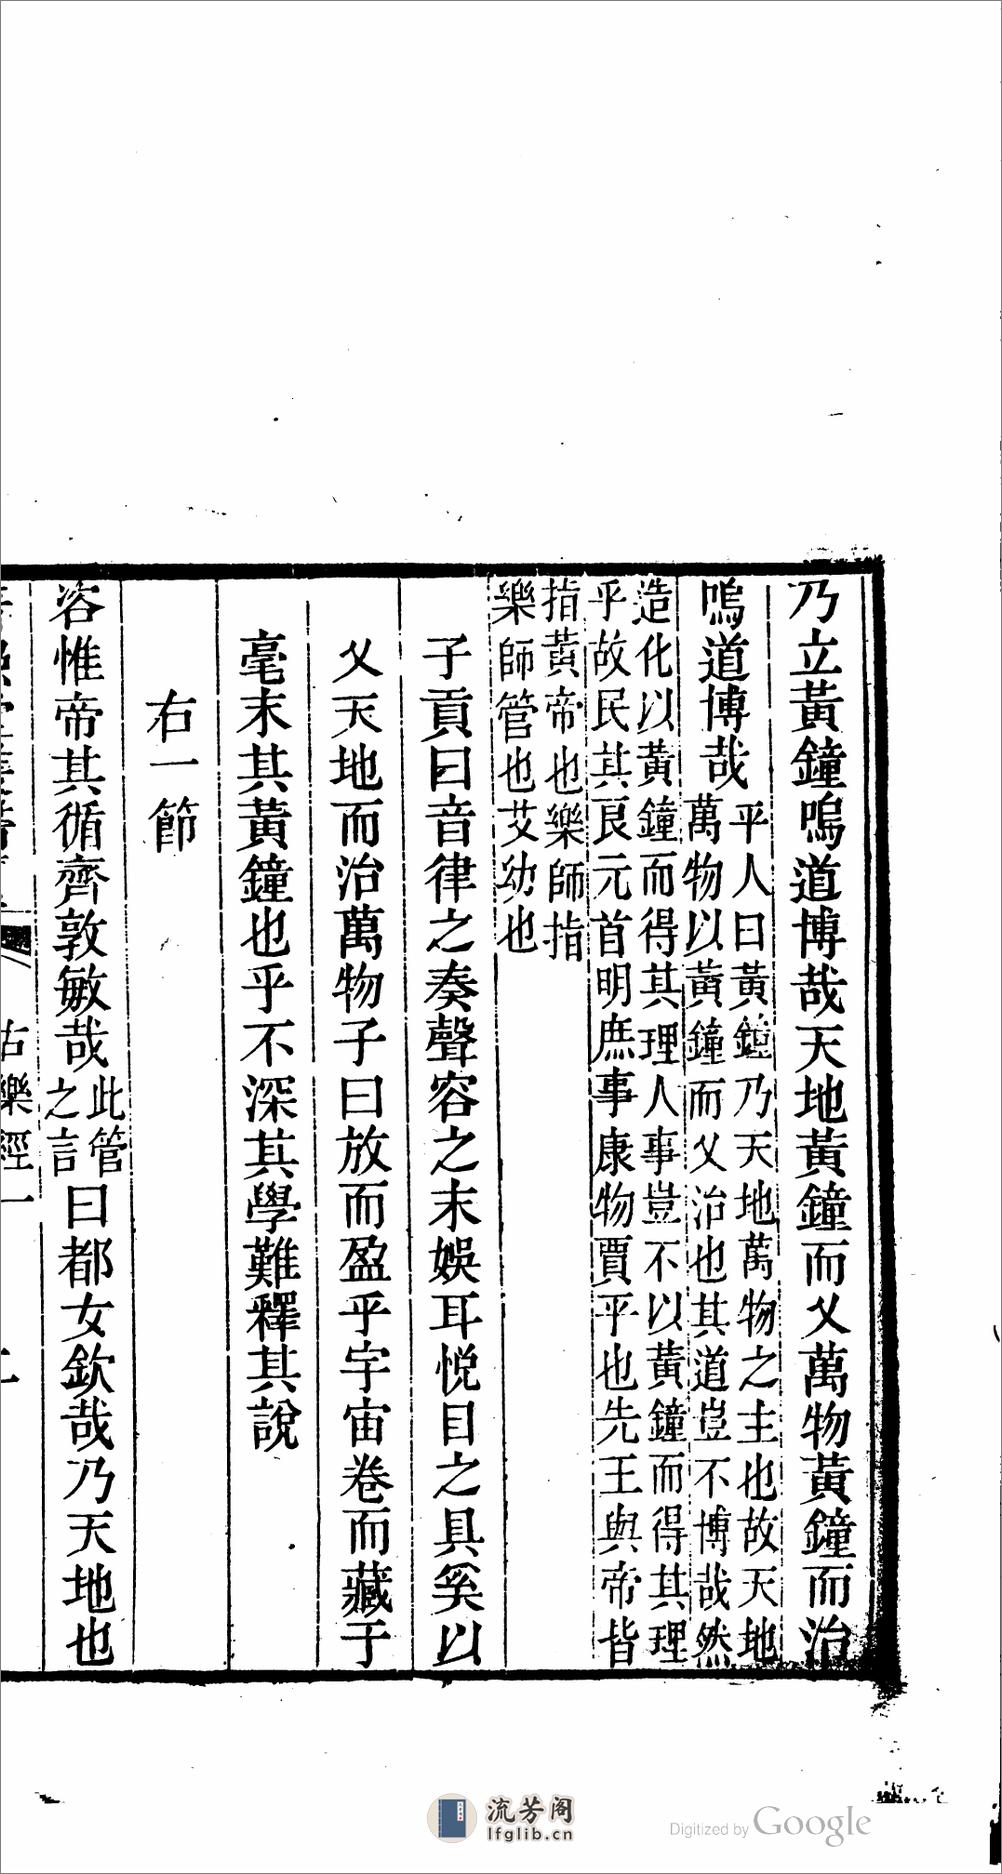 乃立黃鐘嗚道博哉天地黃鐘而乂萬物黃鐘而治
嗚道博哉
平人曰黃鐘乃天地萬物之主也故天地
萬物以黃鐘而乂治也其道豈不博哉然
造化以黃鐘而得其理人事豈不以黃鐘而得其理
乎故民其良元首明庶事康物賈平也先王與帝皆
指黃帝也樂師指
樂師管也艾幼也
子貢曰音律之奏聲容之末娛耳悅目之具奚以
乂天地而治萬物子曰放而盈乎宇宙卷而藏于
毫末其黃鐘也乎不深其學難釋其說
右一節
咨惟帝其循齊敦敏哉
此管
之言
曰都女欽哉乃天地也
古樂經一
二
流芳閣
lfglib.cn
Digitized by Google